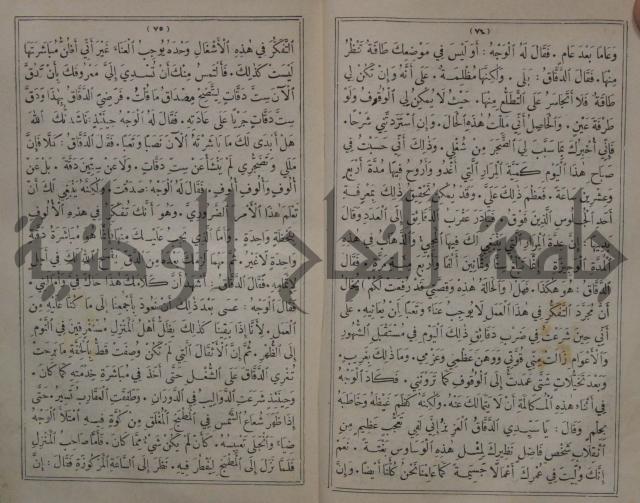 (٧٤)
وعاما بعد عام . فقال له الوجه : أو ليس في موضعك طاقة تنظر
منها . فقال الدقاق : بلى . ولكنها مظلمة . على أنه وإن تكن لي
طاقة فلا أتجاسر على التطلع منها . حيث لا يمكن لي الوقوف ولو
طرفة عين . والحاصل أني مللت هذه الحال . وإن استزدتني شرحا .
فإني أخبرك بما سبب لي الضجر من شغلي . وذلك أني حسبت في
صباح هذا اليوم كمية المرار التي أغدو وأروح فيها مدة أربع
وعشرين ساعة . فعظم ذلك علي . وقد يمكن تحقيق ذلك بمعرفة
أحد الجلوس الذين فوق . فبادر عقرب الدقائق إلى العدد وقال
بديها : إن عدة المرار التي ينبغي لك فيها المجيء والذهاب في هذه
المدة الوجيزة وثمانين ألفا وأربع فقال
الدقاق : هو هكذا . فهل والحالة هذه وقصتي قد رفعت لكم يخال
أن مجرد التفكر في هذا العمل لا يوجب عناء وتعبا لمن يعانيه . على
أني حين شرعت في ضرب دقائق ذلك اليوم في مستقبل الشهور
والأعوام زالت مني قوتي ووهن عظمي وعزمي . وما ذلك بغريب .
وبعد تخيلات شتى عمدت إلى الوقوف كما تروني . فكاد الوجه
في أثناء هذه المكالمة أن لا يتمالك عنه . ولكنه كظم غيظه وخاطبه
بحلم وقال : يا سيدي الدقاق العزيز إني لفي عجب عظيم من
انقلاب شخص فاضل نظيرك لمثل هذه الوساوس بغتة . نعم
إنك وليت في عمرك أعمالا جسيمة كما عملنا نحن كلنا أيضا . وإن
(٧٥)
التفكر في هذه الأشغال وحده يوجب العناء غير أني أظن مباشرتها
ليست كذلك . فألتمس منك أن تسدي إلي معروفك بأن تدق
الآن ست دقات ليتضح مصداق ما قلت . فرضي الدقاق بهذا ودق
ست دقات جريا على عادته . فقال له الوجه حينئذ ناشدتك الله
هل أبدى لك ما باشرته الآن نصبا وتعبا . فقال الدقاق : كلا فإن
مللي وتضجري لم ينشأ عن ست دقات . ولا عن ستين دقة . بل عن
ألوف وألوف ألوف . فقال له الوجه : صدقت ولكنه ينبغي لك أن
تعلم هذا الأمر الضروري . وهو أنك تفكر في هذه الألوف
بلحظة واحدة . وأما الذي يجب عليك منها فإنما هو مباشرة دقة
واحدة لا غير . ثم مهما لك أجل
لإتمامه . فقال الدقاق : أشهد أن كلامك هذا حاك في وأمالني .
فقال الوجه : عسى بعد ذلك أن نعود بأجمعنا إلى ما كنا عليه من
العمل . لأنا إذا بقينا كذلك يظل أهل المنزل مستغرقين في النوم
إلى الظهر . ثم إن الأثقال التي لم تكن وصفت قط بالخفة ما برحت
تغري الدقاق على الشغل حتى أخذ في مباشرة خدمته كما كان .
وحينئذ شرعت الدواليب في الدوران . وطفقت العقارب تسير . حتى
إذا ظهر شعاع الشمس في المطبخ المغلق من كوة فيه امتلأ الوجه
ضياء وانجلى تعبيسه . كأن لم يكن شيء مما كان . فلما صاحب المنزل
فلما نزل إلى المطبخ ليفطر فيه . نظر إلى الساعة المركوزة فقال : إن
جامعة النجاح الوطنية